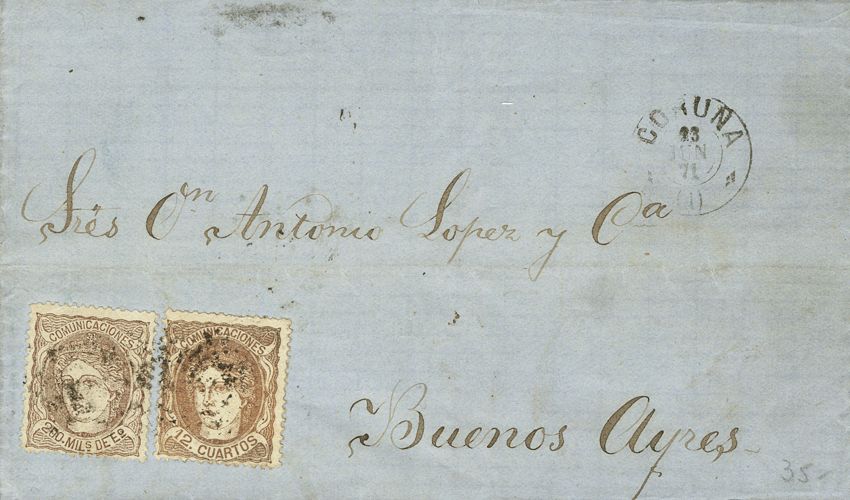 CORUÑA
23
JUN
71
(1)
Srēs Dn Antonio Lopez y Ca
COMUNICACIONES
200 MILS DE Eo
COMUNICACIONES
12 CUARTOS
Buenos Ayres
35-